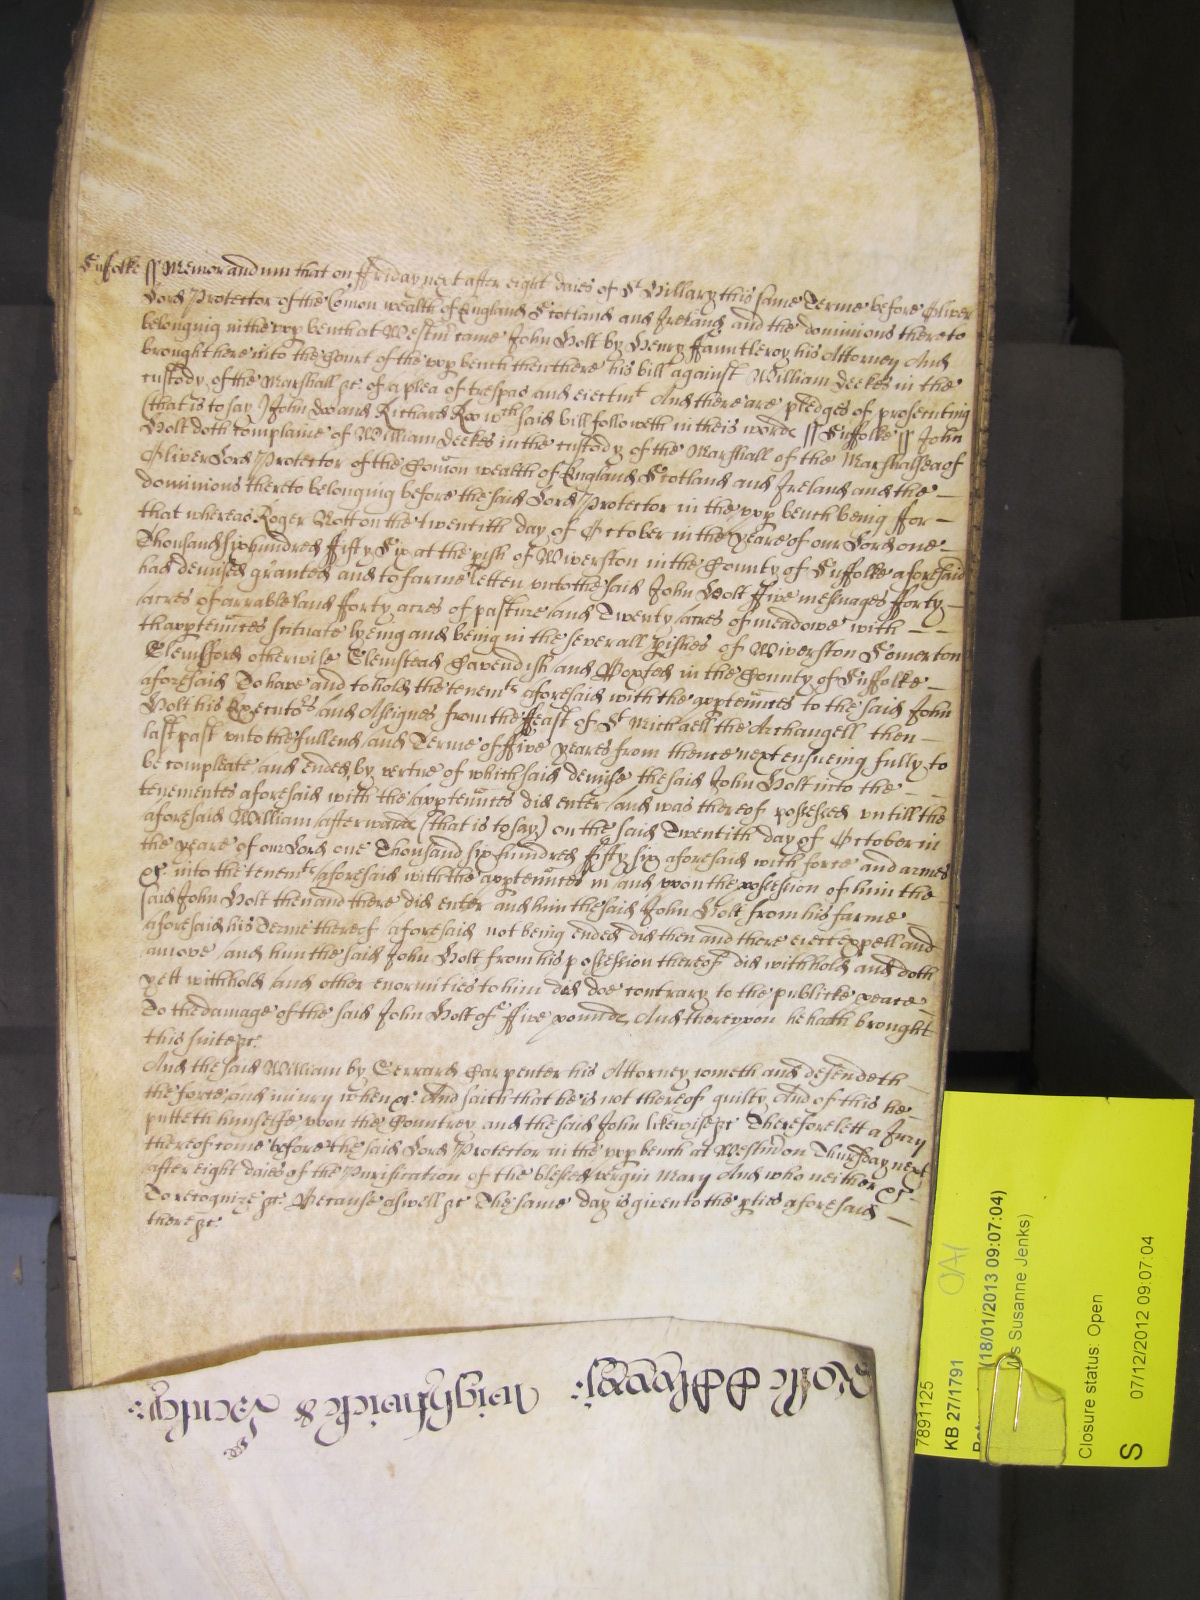 Suffolke ss Memorandum that on ffriday next after eight daies of St Hillary this same Terme before Oliver
Lord Protector of the Comon wealth of England Scotland and Ireland and the dominions thereto
belonginig in the vpp bench at Westm came John Holt by Henry ffauntleroy his Attorney And
brought here into the Court of the vpp bench then there his bill against William Deekes in the
custody of the Marshall &c of a plea of trespas and eiectmt And there are pledges of prosecuting
(that is to say) John Doo and Richard Roo wch said bill followeth in theis words ss Suffolke ss John
Holt doth complaine of William Deekes in the custody of the Marshall of the Marshalsea of
Oliver Lord Protector of the Comon wealth of England Scotland and Ireland and the
dominions thereto belonging before the said Lord Protector in the vpp bench being ffor
that whereas Roger Nott on the twentith day of October in the yeare of our Lord one
Thousand six hundred ffifty Six at the pish of Wiverston in the County of Suffolke aforesaid
had demised granted and to farme letten vnto the said John Holt ffive mesuages fforty
acres of arrable land fforty acres of pasture and Twenty acres of meadowe with
thapptenncs scituate lyeing and being in the severall pishes of Wiverston Somerton
Glemsford otherwise Glemstead Cavendish and Boxted in the County of Suffolke
aforesaid To have and to hold the tenemts aforesaid with the apptenncs to the said John
Holt his Executors and Assignes from the ffeast of St Michaell the Archangell then
last past vnto the full end and Terme of ffive yeares from thence next ensueing fully to
be compleate and ended by vertue of which said demise the said John Holt into the
tenementes aforesaid with the apptenncs did enter and was thereof possessed vntill the
aforesaid William afterwards (that is to say) on the said Twentith day of October in
the yeare of our Lord one Thousand six hundred ffifty six aforesaid with force and armes
&c into the tenemts aforesaid with the apptenncs in and vpon the possession of him the
said John Holt then and there did enter and him the said John Holt from his farme
aforesaid his Terme thereof aforesaid not being ended did then and there eiect expell and
amove and him the said John Holt from his possession thereof did withhold and doth
yett withhold and other enormities to him did doe contrary to the publicke peace
To the damage of the said John Holt of ffive pounds And therevpon he hath brought
this suite &c
And the said William by Gerrard Carpenter his Attorney cometh and defendeth
the force and iniury when &c And saith that he is not thereof guilty And of this he
putteth himselfe vpon the Countrey and the said John likewise &c Therefore lett a Jury
thereof come before the said Lord Protector in the vpp bench at Westm on Thursday next
after eight daies of the Purification of the blessed virgin Mary And who neither &c
To recognize &c Because aswell &c The same day is given to the pties aforesaid
there &c
7891125
KB 27/1791
(18/01/2013 09:07:04)
Susanne Jenks)
Closure status: Open
S
07/12/2012 09:07:04